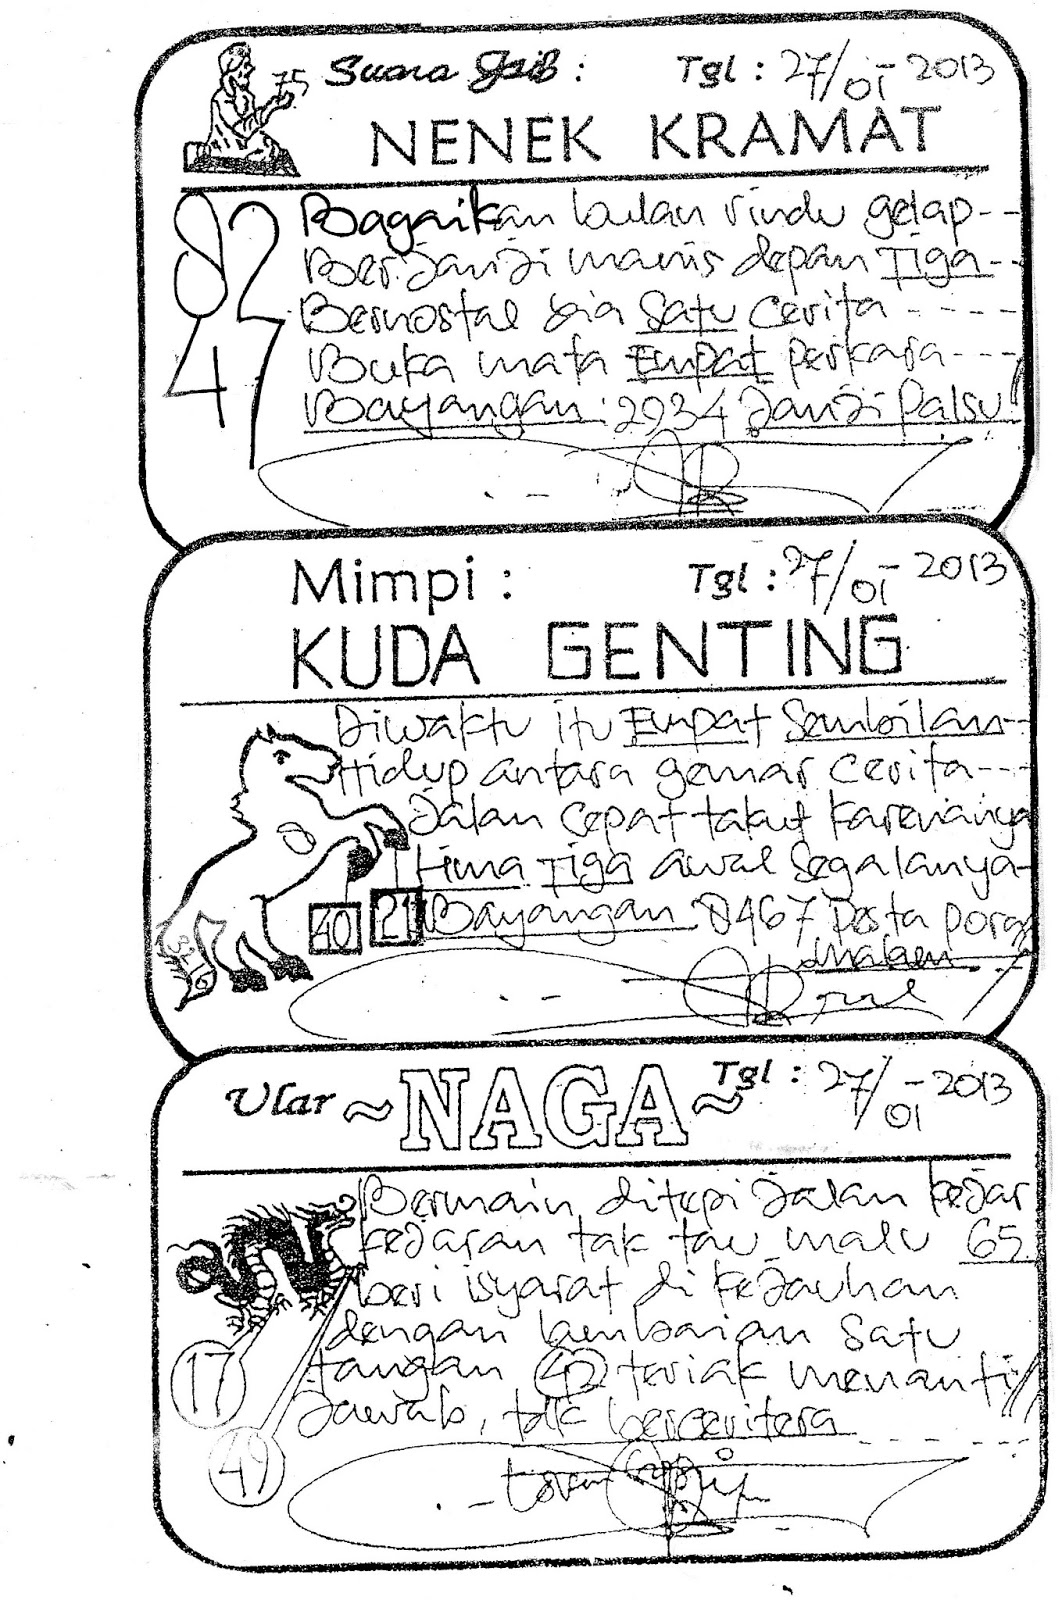 75 Suara Gaib : Tgl : 27/01-2013
NENEK KRAMAT
82 Bagaikan bulan rindu gelap--
Berjanji manis depan Tiga--
dia Satu Cerita ----
47 Buka mata Empat perkara---
Bayangan : 2934 Janji Palsu!!
Mimpi : Tgl : 27/01-2013
KUDA GENTING
Diwaktu itu Empat Sembilan--
Hidup antara gemar cerita---
Jalan cepat takut karenanya
Lima Tiga awal segalanya-
40 21 Bayangan : 8467 Pesta
Ular ~NAGA~ Tgl : 27/01-2013
Bermain ditepi Jalan kejar
kejaran tak tau malu 65
beri isyarat di kejauhan
dengan lambaian satu
17 tangan 42 teriak menanti
jawab, tdk berceritera
49